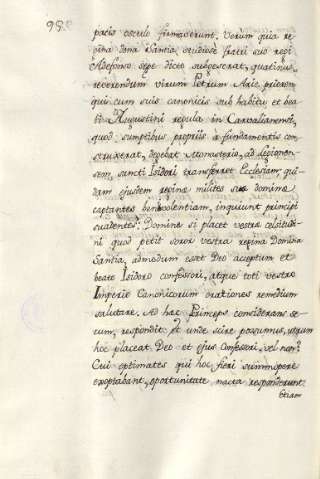 98.
pacis osculo firmaverunt. Verum quia re
gina dona Santia studiose fratri suo regi
Adefonso sepe dicto subgeserat, quatinus
reverendum virum Petrum Arie, priorem
qui cum suis canonicis sub habitu et bea
ti Augustini regula in Carvalianensi,
quod sumptibus propriis a fundamentis con
struxerat, degebat Monasterio, ad Legionen
sem, sancti Isidori transferret Ecclesiam, qui
dam ejusdem regine milites sue domine
captantes benevolentiam, inquiunt principi
suadentes: Domine si placet vestre celsitudi
ni quod petit soror vestra regina Domina
Santia, admodum erit Deo acceptum et
beato Isidoro confessori, atque toti vestro
Imperio Canonicorum orationes remedium
salutare. Ad hac Princeps considerans se
cum, respondit: et unde scire possumus, utrum
hoc placeat Deo et ejus Confessori, vel non?
Cui optimates qui hoc fieri summopere
exoptabant, oportunitate nacta responderunt
Etiam